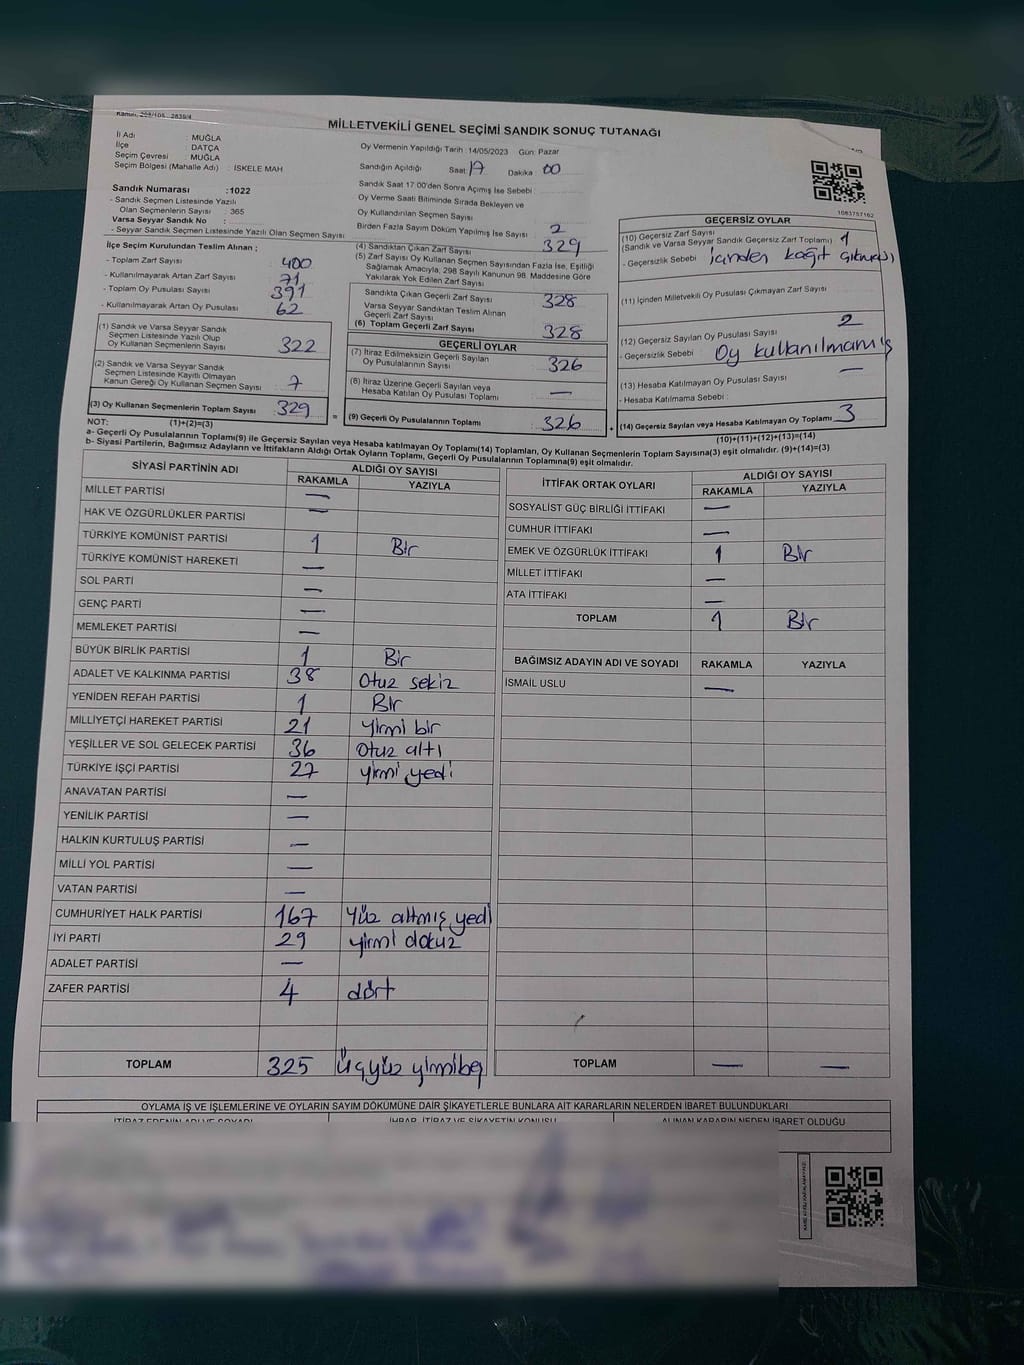 MİLLETVEKİLİ GENEL SEÇİMİ SANDIK SONUÇ TUTANAĞI
İl Adı : MUĞLA
İlçe : DATÇA
Seçim Çevresi : MUĞLA
Seçim Bölgesi (Mahalle Adı) : İSKELE MAH
Sandık Numarası :1022
- Sandık Seçmen Listesinde Yazılı
Olan Seçmenlerin Sayısı : 365
Varsa Seyyar Sandık No :
- Seyyar Sandık Seçmen Listesinde Yazılı Olan Seçmen Sayısı
İlçe Seçim Kurulundan Teslim Alınan ;
- Toplam Zarf Sayısı : 400
- Kullanılmayarak Artan Zarf Sayısı : 71
- Toplam Oy Pusulası Sayısı : 391
- Kullanılmayarak Artan Oy Pusulası : 62
(1) Sandık ve Varsa Seyyar Sandık
Seçmen Listesinde Yazılı Olup
Oy Kullanan Seçmenlerin Sayısı : 322
(2) Sandık ve Varsa Seyyar Sandık
Seçmen Listesinde Kayıtlı Olmayan
Kanun Gereği Oy Kullanan Seçmen Sayısı : 7
(3) Oy Kullanan Seçmenlerin Toplam Sayısı : 329
Oy Vermenin Yapıldığı Tarih : 14/05/2023 Gün: Pazar
Sandığın Açıldığı Saat: 17 Dakika 00
Sandık Saat 17:00'den Sonra Açımış İse Sebebi :
Oy Verme Saati Bitiminde Sırada Bekleyen ve
Oy Kullandırılan Seçmen Sayısı :
Birden Fazla Sayım Döküm Yapılmış İse Sayısı : 2
(4) Sandıktan Çıkan Zarf Sayısı : 329
(5) Zarf Sayısı Oy Kullanan Seçmen Sayısından Fazla İse, Eşitliği
Sağlamak Amacıyla, 298 Sayılı Kanunun 98. Maddesine Göre
Yakılarak Yok Edilen Zarf Sayısı :
Sandıkta Çıkan Geçerli Zarf Sayısı : 328
Varsa Seyyar Sandıktan Teslim Alınan
Geçerli Zarf Sayısı :
(6) Toplam Geçerli Zarf Sayısı : 328
GEÇERLİ OYLAR
(7) İtiraz Edilmeksizin Geçerli Sayılan
Oy Pusulalarının Sayısı : 326
(8) İtiraz Üzerine Geçerli Sayılan veya
Hesaba Katılan Oy Pusulası Toplamı : —
= (9) Geçerli Oy Pusulalarının Toplamı : 326
1083757162
GEÇERSİZ OYLAR
(10) Geçersiz Zarf Sayısı
(Sandık ve Varsa Seyyar Sandık Geçersiz Zarf Toplamı) : 1
- Geçersizlik Sebebi : içinden kağıt
(11) İçinden Milletvekili Oy Pusulası Çıkmayan Zarf Sayısı :
(12) Geçersiz Sayılan Oy Pusulası Sayısı : 2
- Geçersizlik Sebebi : Oy kullanılmamış
(13) Hesaba Katılmayan Oy Pusulası Sayısı : —
- Hesaba Katılmama Sebebi :
+ (14) Geçersiz Sayılan veya Hesaba Katılmayan Oy Toplamı : 3
NOT: (1)+(2)=(3)
(10)+(11)+(12)+(13)=(14)
a- Geçerli Oy Pusulalarının Toplamı(9) ile Geçersiz Sayılan veya Hesaba katılmayan Oy Toplamı(14) Toplamları, Oy Kullanan Seçmenlerin Toplam Sayısına(3) eşit olmalıdır. (9)+(14)=(3)
b- Siyasi Partilerin, Bağımsız Adayların ve İttifakların Aldığı Ortak Oyların Toplamı, Geçerli Oy Pusulalarının Toplamına(9) eşit olmalıdır.
SİYASİ PARTİNİN ADI ALDIĞI OY SAYISI
RAKAMLA YAZIYLA
MİLLET PARTİSİ —
HAK VE ÖZGÜRLÜKLER PARTİSİ —
TÜRKİYE KOMÜNİST PARTİSİ 1 Bir
TÜRKİYE KOMÜNİST HAREKETİ —
SOL PARTİ —
GENÇ PARTİ —
MEMLEKET PARTİSİ —
BÜYÜK BİRLİK PARTİSİ 1 Bir
ADALET VE KALKINMA PARTİSİ 38 Otuz sekiz
YENİDEN REFAH PARTİSİ 1 Bir
MİLLİYETÇİ HAREKET PARTİSİ 21 yirmi bir
YEŞİLLER VE SOL GELECEK PARTİSİ 36 Otuz altı
TÜRKİYE İŞÇİ PARTİSİ 27 yirmi yedi
ANAVATAN PARTİSİ —
YENİLİK PARTİSİ —
HALKIN KURTULUŞ PARTİSİ —
MİLLİ YOL PARTİSİ —
VATAN PARTİSİ —
CUMHURİYET HALK PARTİSİ 167 Yüz altmış yedi
İYİ PARTİ 29 yirmi dokuz
ADALET PARTİSİ —
ZAFER PARTİSİ 4 dört
TOPLAM 325 üçyüz yirmibeş
İTTİFAK ORTAK OYLARI ALDIĞI OY SAYISI
RAKAMLA YAZIYLA
SOSYALİST GÜÇ BİRLİĞİ İTTİFAKI —
CUMHUR İTTİFAKI —
EMEK VE ÖZGÜRLÜK İTTİFAKI 1 Bir
MİLLET İTTİFAKI —
ATA İTTİFAKI —
TOPLAM 1 Bir
BAĞIMSIZ ADAYIN ADI VE SOYADI RAKAMLA YAZIYLA
İSMAİL USLU —
TOPLAM — —
OYLAMA İŞ VE İŞLEMLERİNE VE OYLARIN SAYIM DÖKÜMÜNE DAİR ŞİKAYETLERLE BUNLARA AİT KARARLARIN NELERDEN İBARET BULUNDUKLARI
İTİRAZ EDENİN ADI VE SOYADI İHBAR, İTİRAZ VE ŞİKAYETİN KONUSU ALINAN KARARIN NEDEN İBARET OLDUĞU